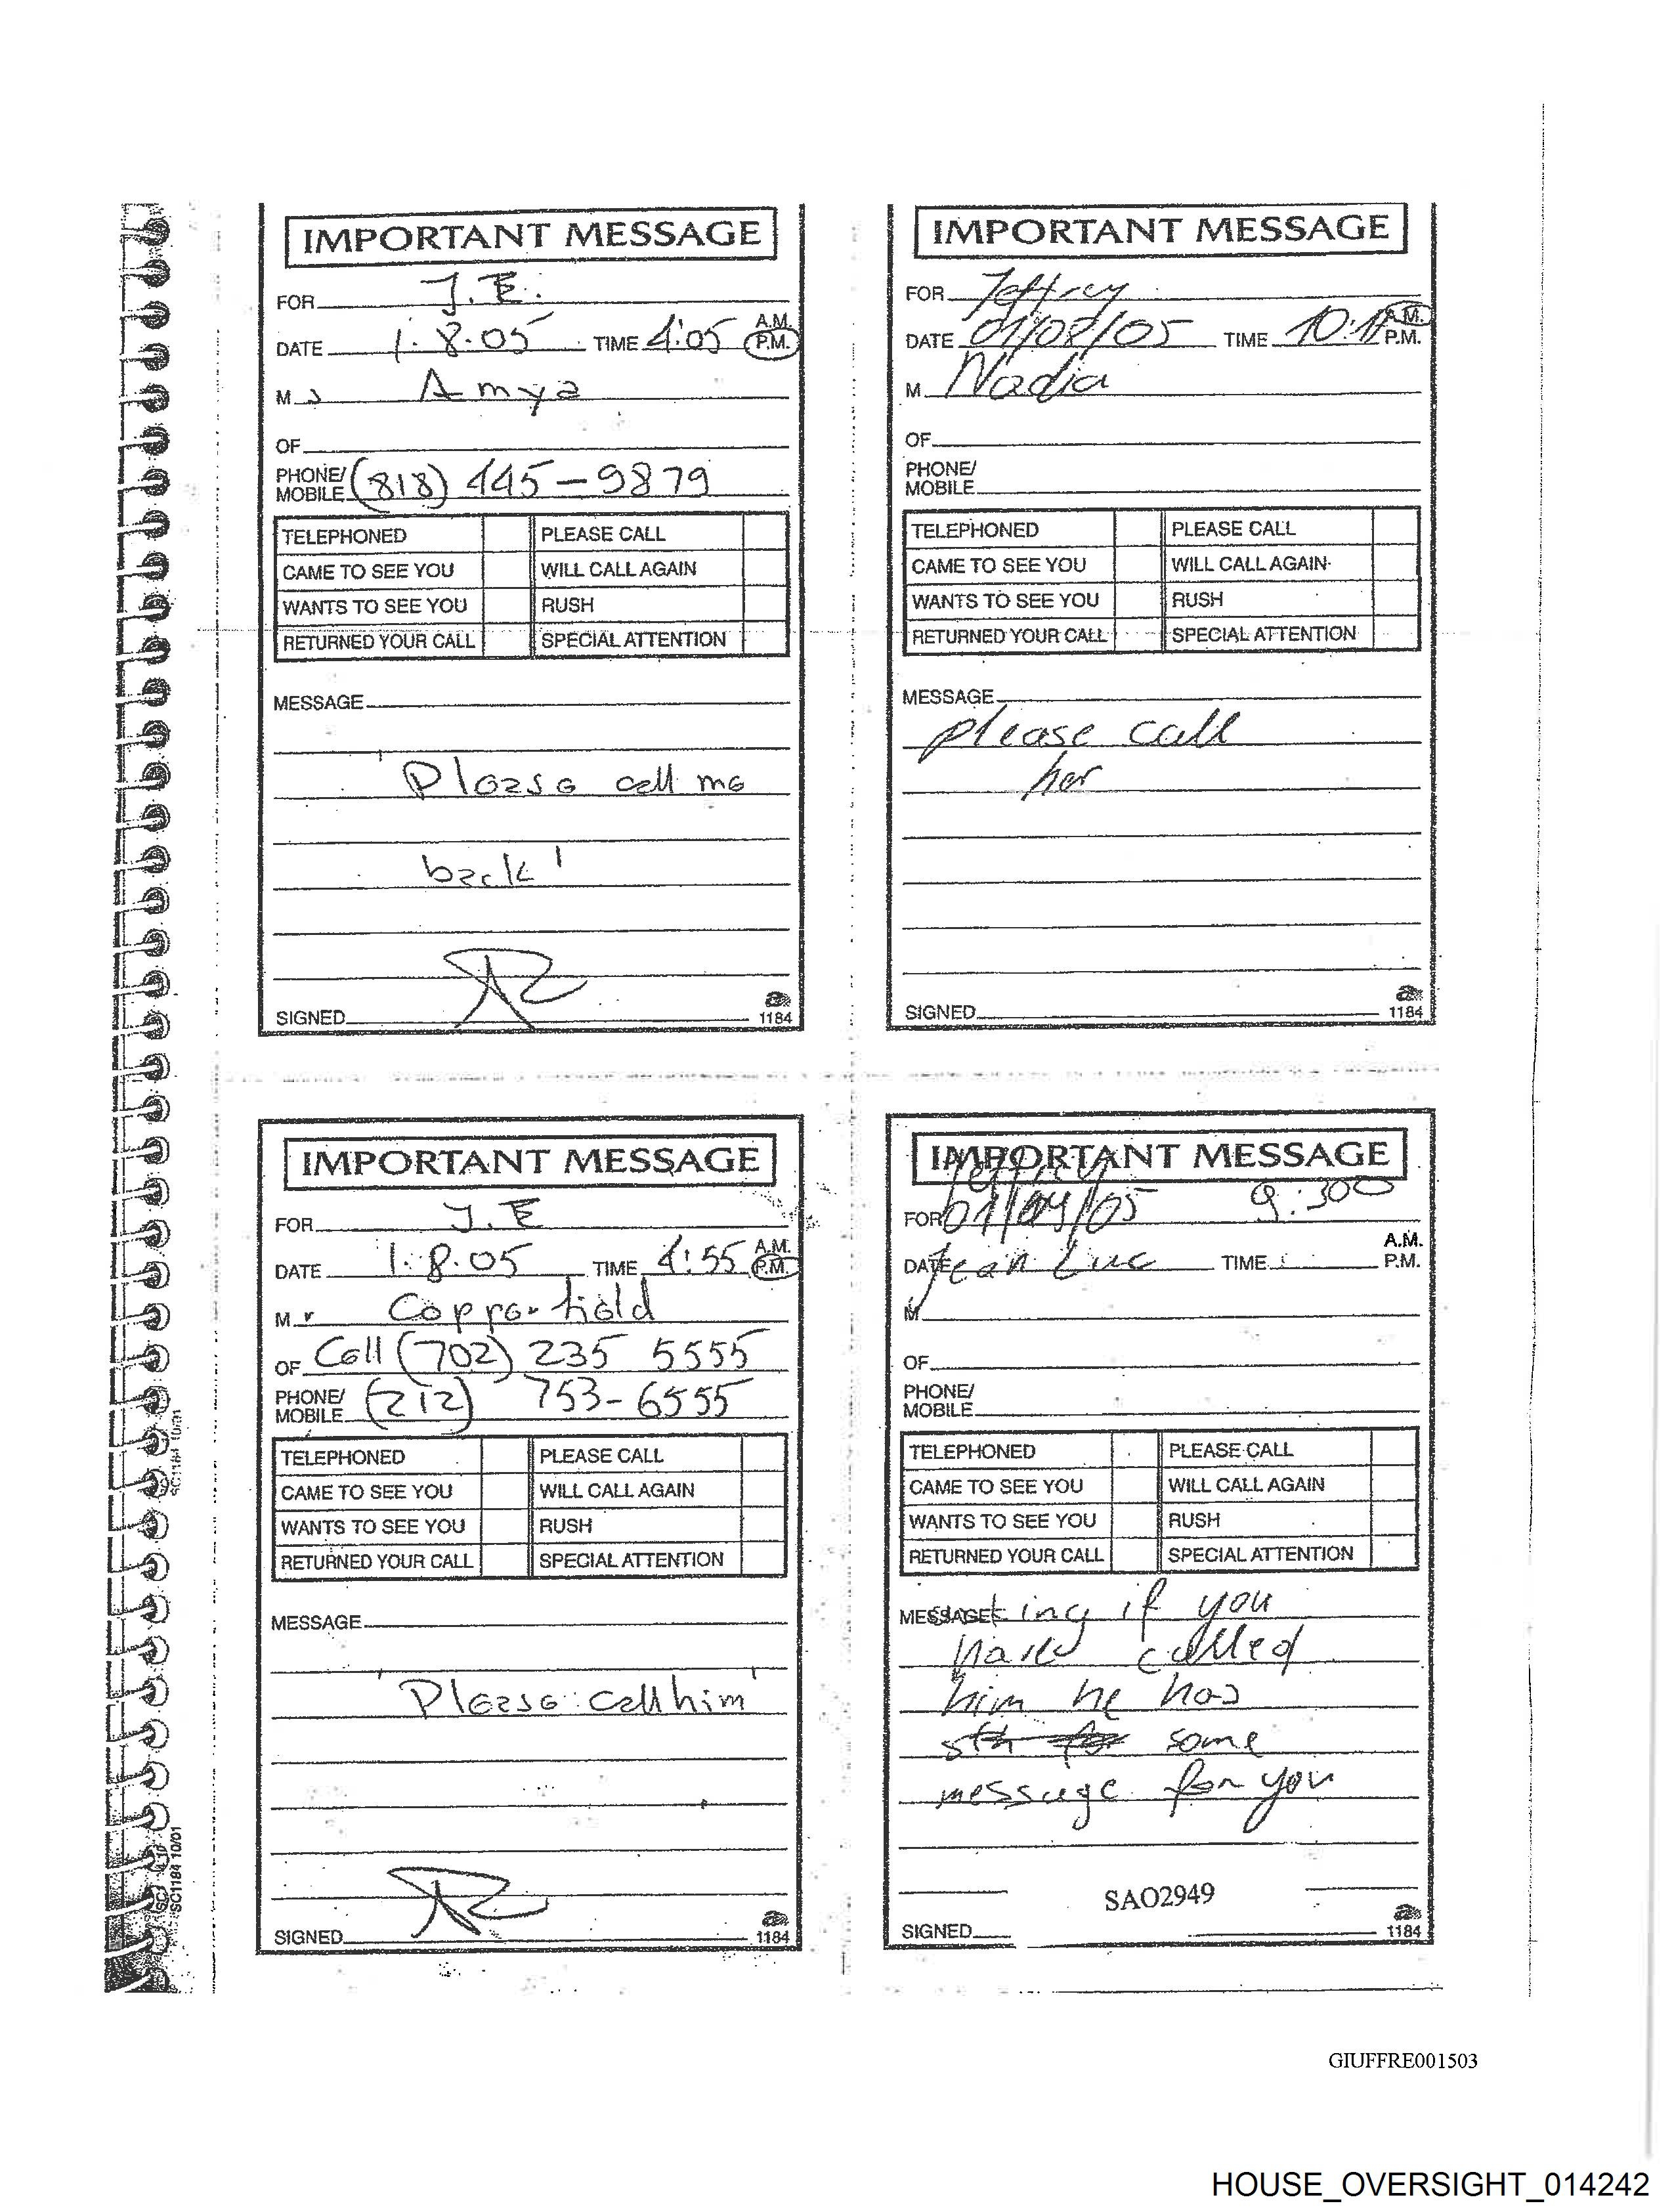 IMPORTANT MESSAGE
FOR J.E.
DATE 1.8.05 TIME 4:05 A.M. P.M.
M s Amya
OF
PHONE/ MOBILE (818) 445-9879
TELEPHONED PLEASE CALL
CAME TO SEE YOU WILL CALL AGAIN
WANTS TO SEE YOU RUSH
RETURNED YOUR CALL SPECIAL ATTENTION
MESSAGE
'Please call me
back'
SIGNED
1184
IMPORTANT MESSAGE
FOR Jeffrey
DATE 01/08/05 TIME A.M. P.M.
M Nadia
OF
PHONE/ MOBILE
TELEPHONED PLEASE CALL
CAME TO SEE YOU WILL CALL AGAIN
WANTS TO SEE YOU RUSH
RETURNED YOUR CALL SPECIAL ATTENTION
MESSAGE
please call
her
SIGNED
1184
IMPORTANT MESSAGE
FOR J.E
DATE 1.8.05 TIME 4:55 A.M. P.M.
M r Copperfield
OF Cell (702) 235 5555
PHONE/ MOBILE (212) 753-6555
TELEPHONED PLEASE CALL
CAME TO SEE YOU WILL CALL AGAIN
WANTS TO SEE YOU RUSH
RETURNED YOUR CALL SPECIAL ATTENTION
MESSAGE
'Please call him'
SIGNED
1184
SC1184 10/01
IMPORTANT MESSAGE
Jeffrey
FOR 9:30
A.M.
DATE Jean Luc TIME P.M.
M
OF
PHONE/ MOBILE
TELEPHONED PLEASE CALL
CAME TO SEE YOU WILL CALL AGAIN
WANTS TO SEE YOU RUSH
RETURNED YOUR CALL SPECIAL ATTENTION
MESSAGE if you
have called
him he has
sth some
message for you
SAO2949
SIGNED
1184
GIUFFRE001503
HOUSE_OVERSIGHT_014242